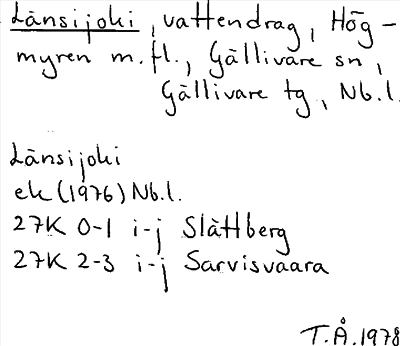 Länsijoki, vattendrag, Hög-
myren m.fl., Gällivare sn,
Gällivare tg, Nb.l.
Länsijoki
ek (1976) Nb.l.
27K 0-1 i-j Slättberg
27K 2-3 i-j Sarvisvaara
T.Å. 1978